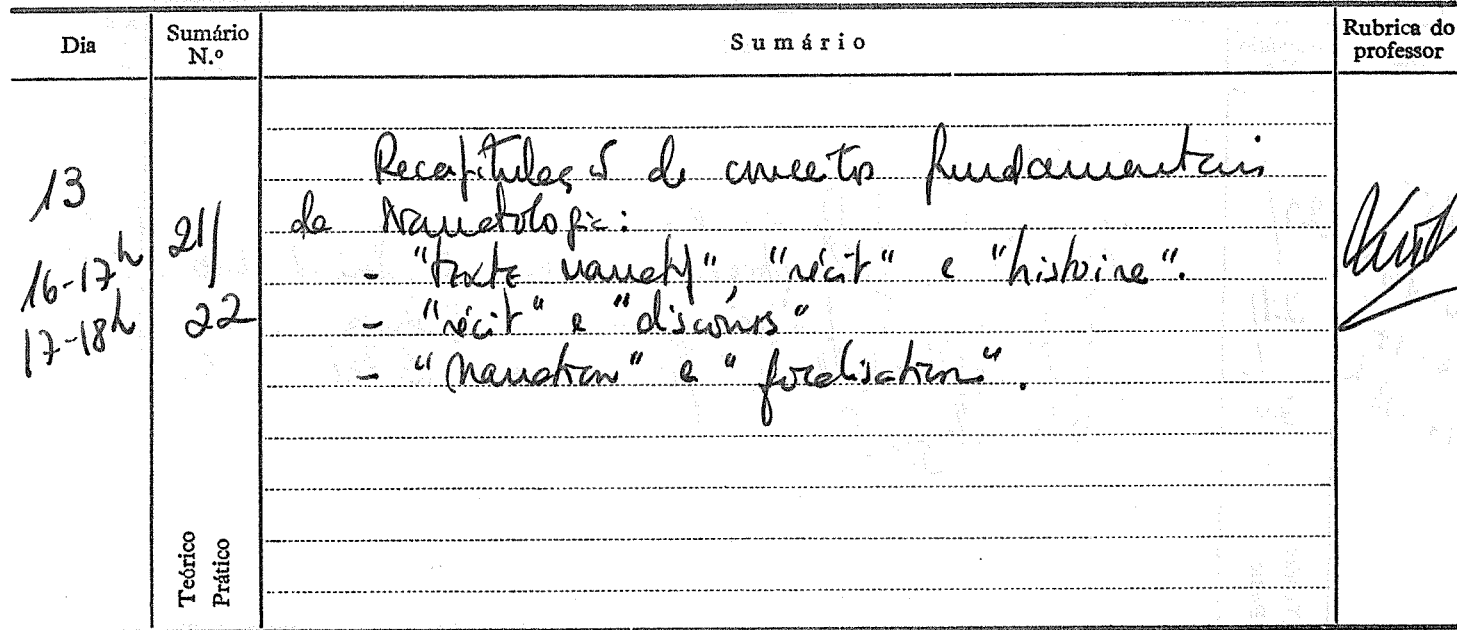 Dia
Sumário N.º
Sumário
Rubrica do professor
13
16-17h
17-18h
21/
22
Recapitulação de conceitos fundamentais
da Narratologia:
- "texte narratif", "récit" e "histoire".
- "récit" e "discours"
- "narration" e "focalisation".
Teórico
Prático